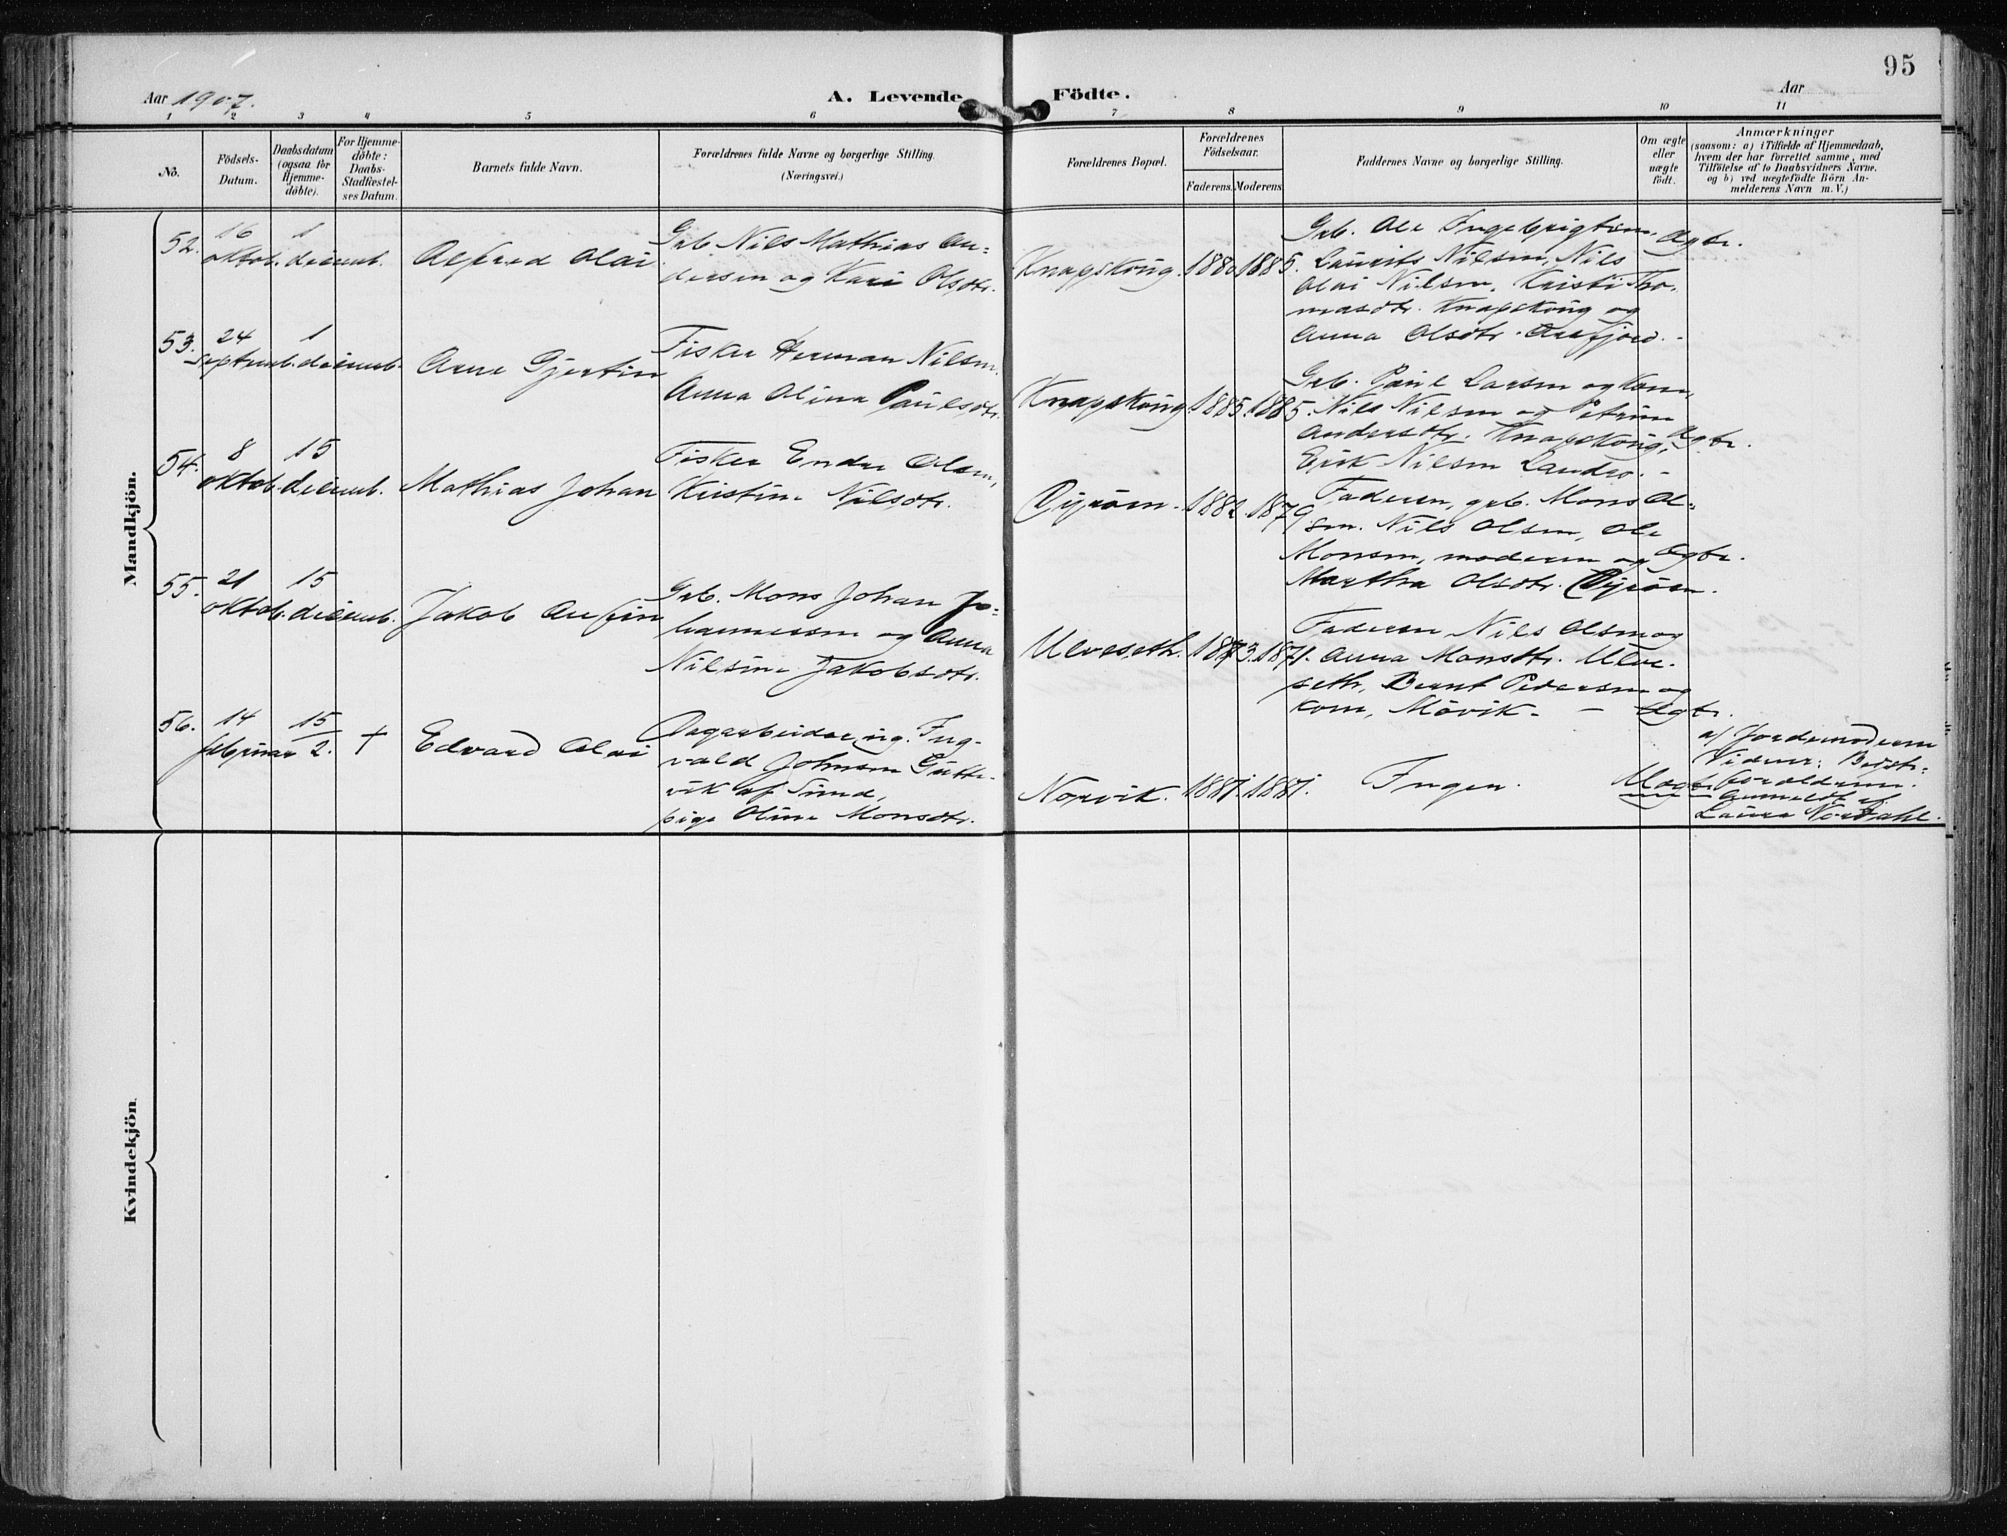 95
Aar 1907.
A. Levende Födte.
Aar
1 2 3 4 5 6 7 8 9 10 11
No.
Födsels-
Datum.
Daabsdatum
(ogsaa for
Hjemme-
döbte).
For Hjemme-
döbte:
Daabs-
Stadfæstel-
ses Datum.
Barnets fulde Navn.
Forældrenes fulde Navne og borgerlige Stilling.
(Næringsvei.)
Forældrenes Bopæl.
Forældrenes
Födselsaar.
Faderens. Moderens.
Faddernes Navne og borgerlige Stilling.
Om ægte
eller
uægte
født.
Anmærkninger
(saasom: a) i Tilfælde af Hjemmedaab,
hvem der har forrettet samme, med
Tilföielse af to Daabsvidners Navne,
og b) ved uægtefödte Börn An-
melderens Navn m. V.)
Mandkjön.
52.
16
oktob.
1
decemb.
Alfred Olai
Grb. Nils Mathias An-
dersen og Kari Olsdtr.
Knapskóug. 1880 1885.
Grb. Ole Ingebrigtsen,
Laurits Nilsen, Nils
Olai Nilsen, Kristi Tho-
masdtr. Knapskoug og
Anna Olsdtr. Arefjord. -
Ægte.
53.
24
septemb.
1
decemb.
Arne Gjertin
Fisker Herman Nilsen.
Anna Olina Paulsdtr.
Knapskoug. 1885. 1885.
Grb. Paul Larsen og Kone,
Nils Nilsen og Petrine
Andersdtr. Knapskoug,
Erik Nilsen Landro. -
Ægte.
54.
8
oktob.
15
decemb.
Mathias Johan
Fisker Endre Olsen,
Kristine Nilsdtr.
Dyröen. 1882. 1879
Faderen, grb. Mons Ol-
sen. Nils Olsen, Ole
Monsen, moderen og
Martha Olsdtr. Dyröen.
Ægte.
55.
21
oktob.
15
decemb.
Jakob Arefin
Grb. Mons Johan Jo-
hannessen og Anna
Nilsine Jakobsdtr.
Ulveseth. 1873. 1871.
Faderen Nils Olsen og
Anna Monsdtr. Ulve-
seth, Bernt Pedersen og
Kone, Mövik. -
Ægte.
56.
14
februar
15
2.
+
Edvard Olai
Dagarbeider, ug. Ing-
vald Johnsen Gutte-
vik af Sund,
pige Oline Monsdtr.
Norvik. 1887. 1887.
Ingen.
Uægte
a) Jordemoderen
Vidner: Bedste-
forældrene.
Anmeldt af
Laura Nordahl.
Kvindekjön.